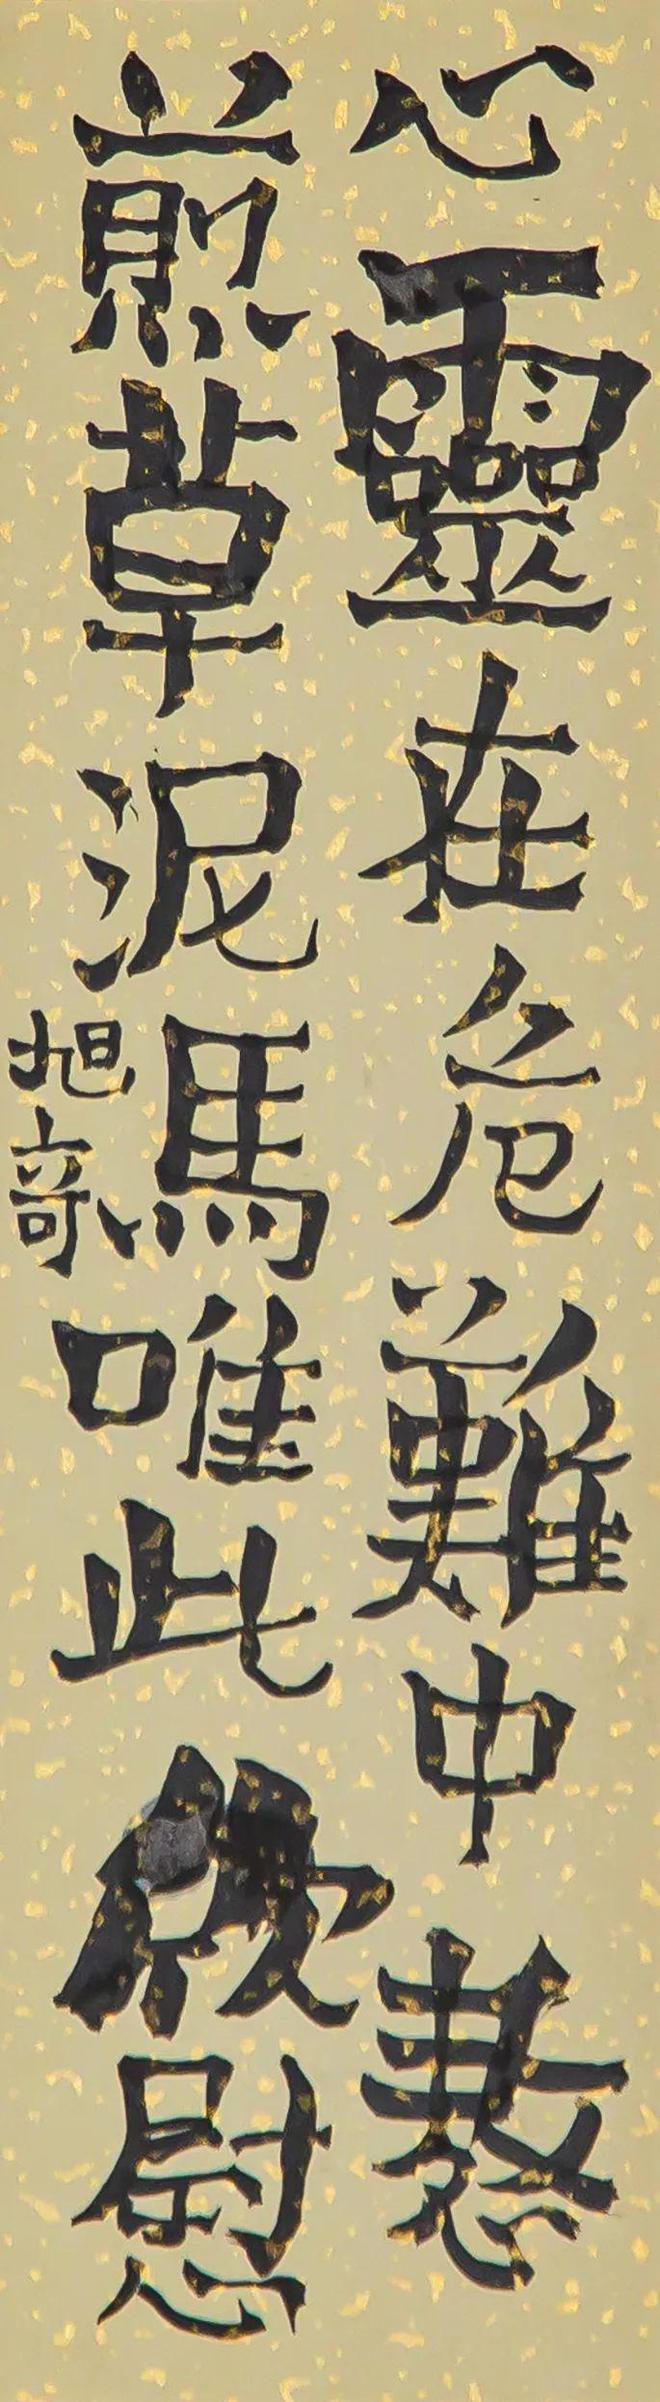 心靈在危難中熬
煎草泥馬唯此欣慰
旭奇